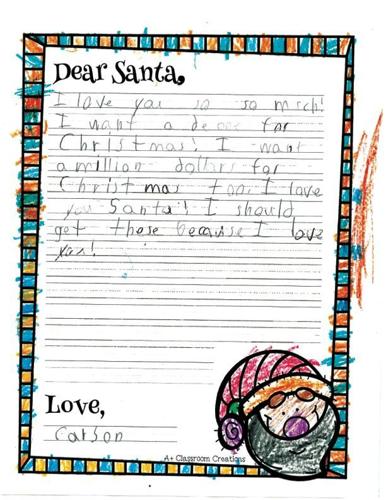 Dear Santa,
I love you so so msch!
I want a for
Christmas! I want
a million dollars for
Christmas too. I love
you Santa! I should
get those because I love
you!
Love,
Carson
A+ Classroom Creations